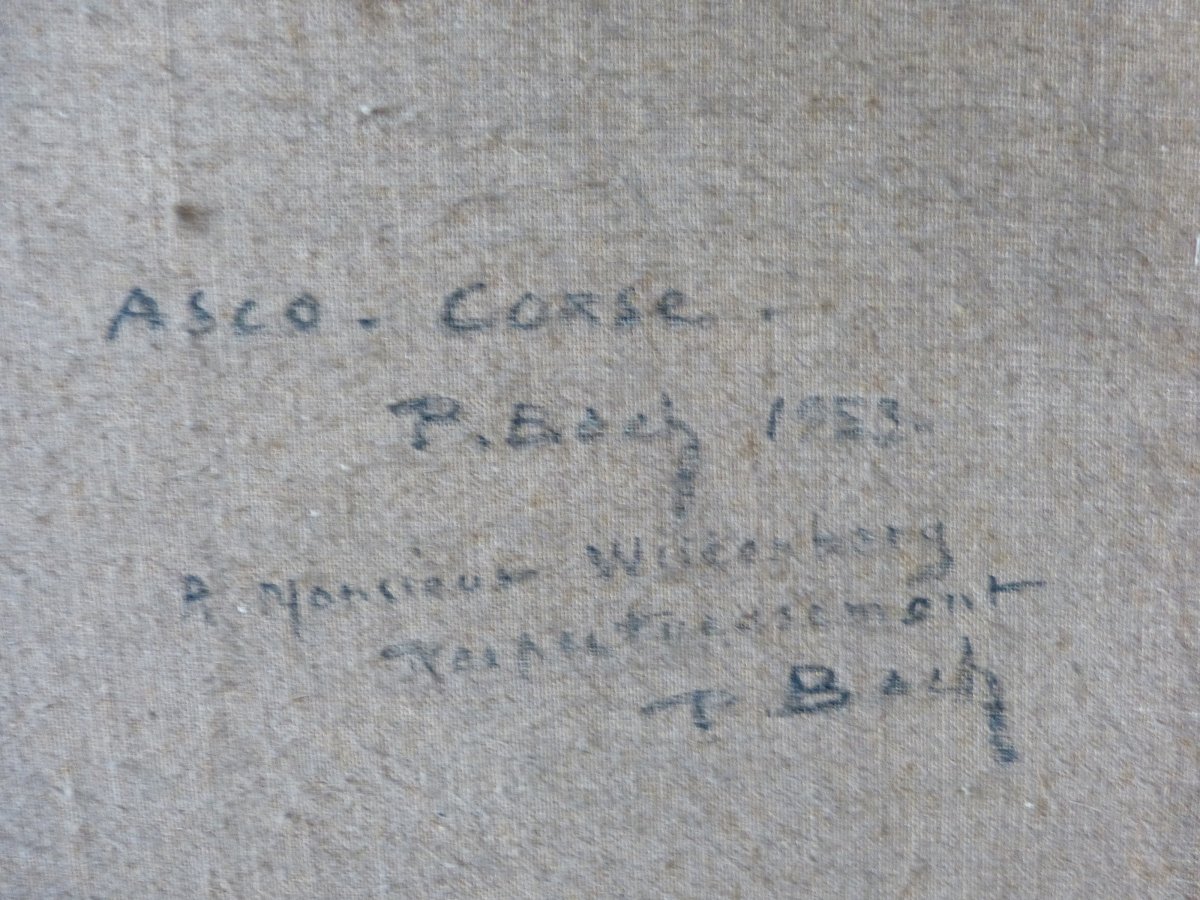 ASCO. CORSE.
P. Bach 1953.
A Monsieur
Respectueusement
P Bach